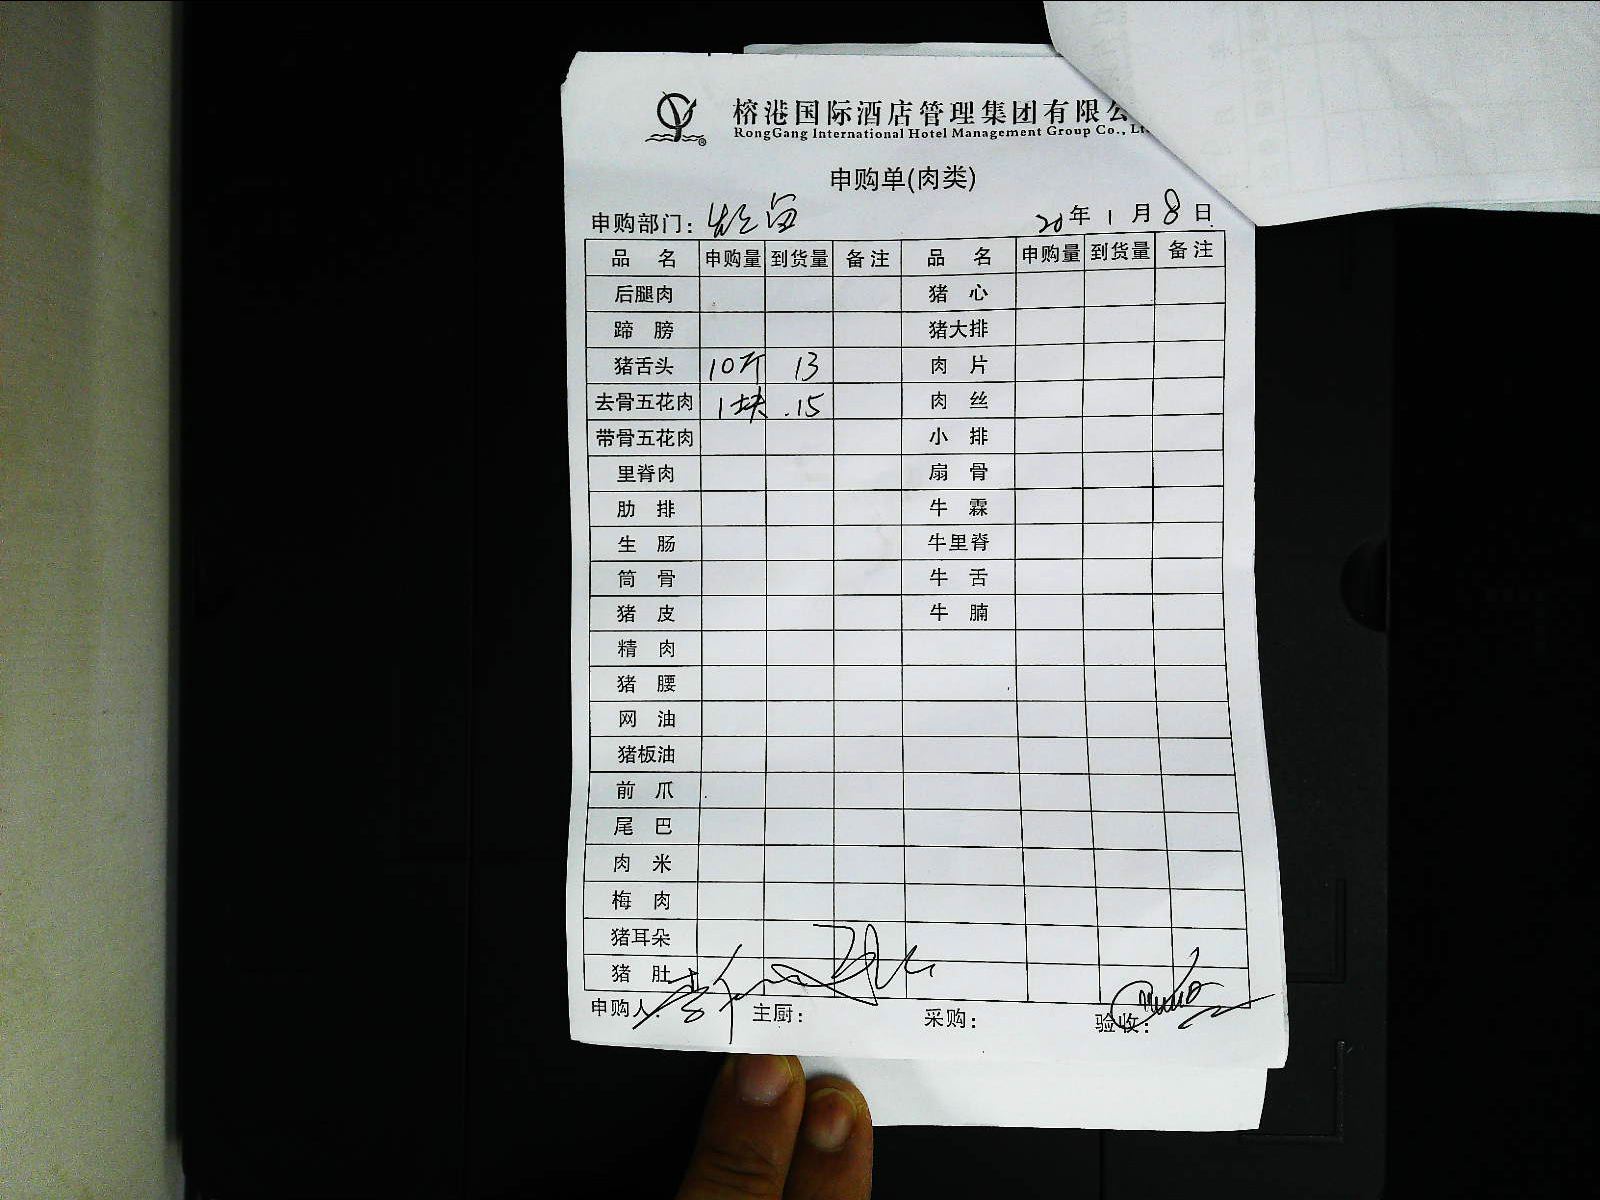 榕港国际酒店管理集团有限公
RongGang International Hotel Management Group Co., Lt
申购单(肉类)
申购部门: 20年1月8日
品名 申购量 到货量 备注 品名 申购量 到货量 备注
后腿肉 猪心
蹄膀 猪大排
猪舌头 10斤 13 肉片
去骨五花肉 1块 .15 肉丝
带骨五花肉 小排
里脊肉 扇骨
肋排 牛霖
生肠 牛里脊
筒骨 牛舌
猪皮 牛腩
精肉
猪腰
网油
猪板油
前爪
尾巴
肉米
梅肉
猪耳朵
猪肚
申购人: 主厨: 采购: 验收: